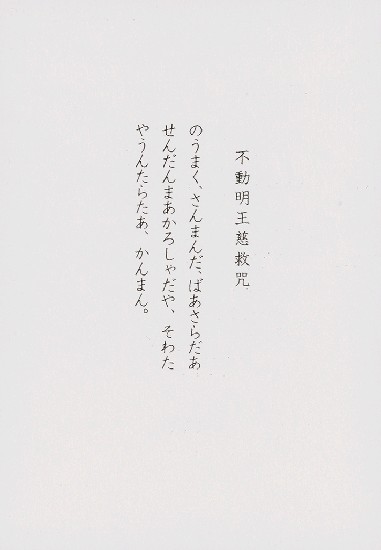 不動明王慈救咒
のうまく、さんまんだ、ばあさらだあ
せんだんまあかろしゃだや、そわた
やうんたらたあ、かんまん。